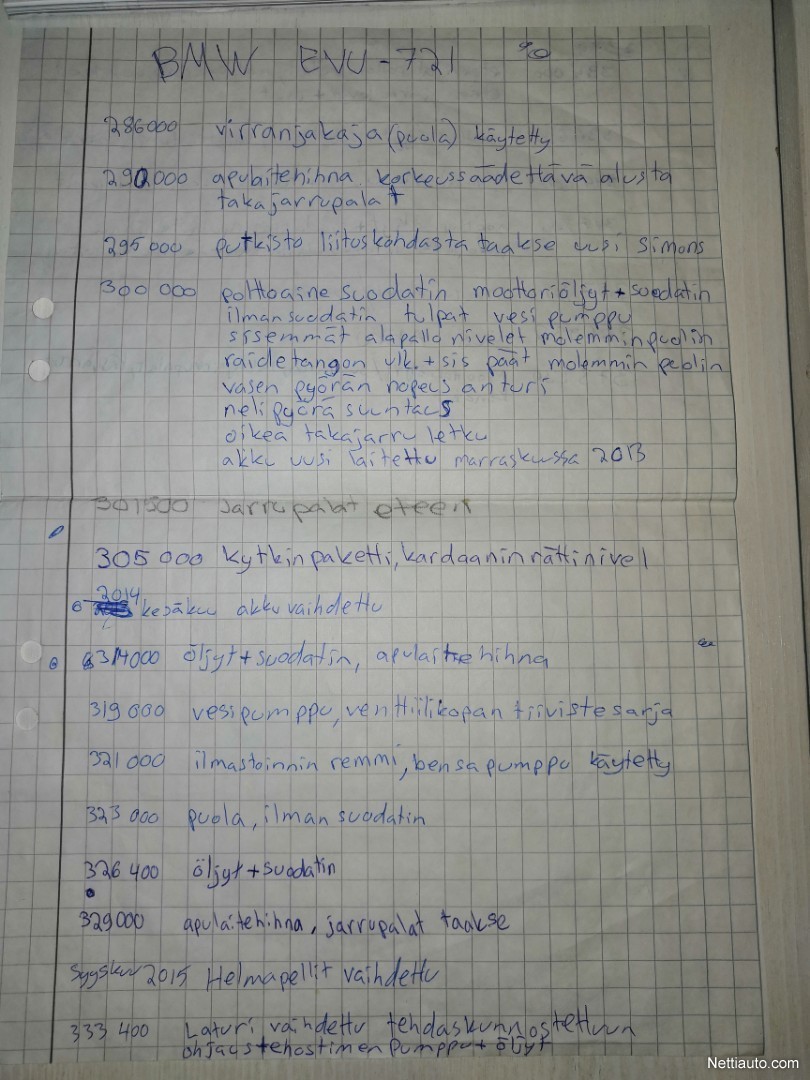 BMW EVU-721
286000 virranjakaja (puola) käytetty
290000 apulaitehihna korkeussäädettävä alusta
takajarrupalat
295000 putkisto liitoskohdasta taakse uusi Simons
300 000 polttoaine suodatin moottoriöljyt + suodatin
ilmansuodatin tulpat vesi pumppu
sisemmät alapallo nivelet molemmin puolin
raidetangon ulk. + sis päät molemmin puolin
vasen pyörän nopeus anturi
nelipyörä suuntaus
oikea takajarru letku
akku uusi laitettu marraskussa 2013
301500 Jarrupalat eteen
305 000 kytkinpaketti, kardaanin rättinivel
2014 kesäku akku vaihdettu
314000 öljyt + suodatin, apulaitehihna
319 000 vesipumppu, venttiilikopan tiivistesarja
321 000 ilmastoinnin remmi, bensapumppu käytetty
323 000 puola, ilman suodatin
326 400 öljyt + suodatin
329000 apulaitehihna, jarrupalat taakse
Syysku 2015 Helmapellit vaihdettu
333 400 Laturi vaihdettu tehdaskunnostettuun
ohjaustehostimen pumppu + öljyt
Nettiauto.com